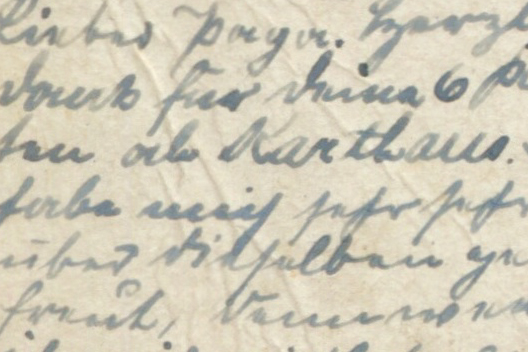 Lieber Papa. Herzl
dank für deine 6 Pa
ten ab Karthaus.
habe mich sehr sehr
über dieselben ge
freut, denn wen